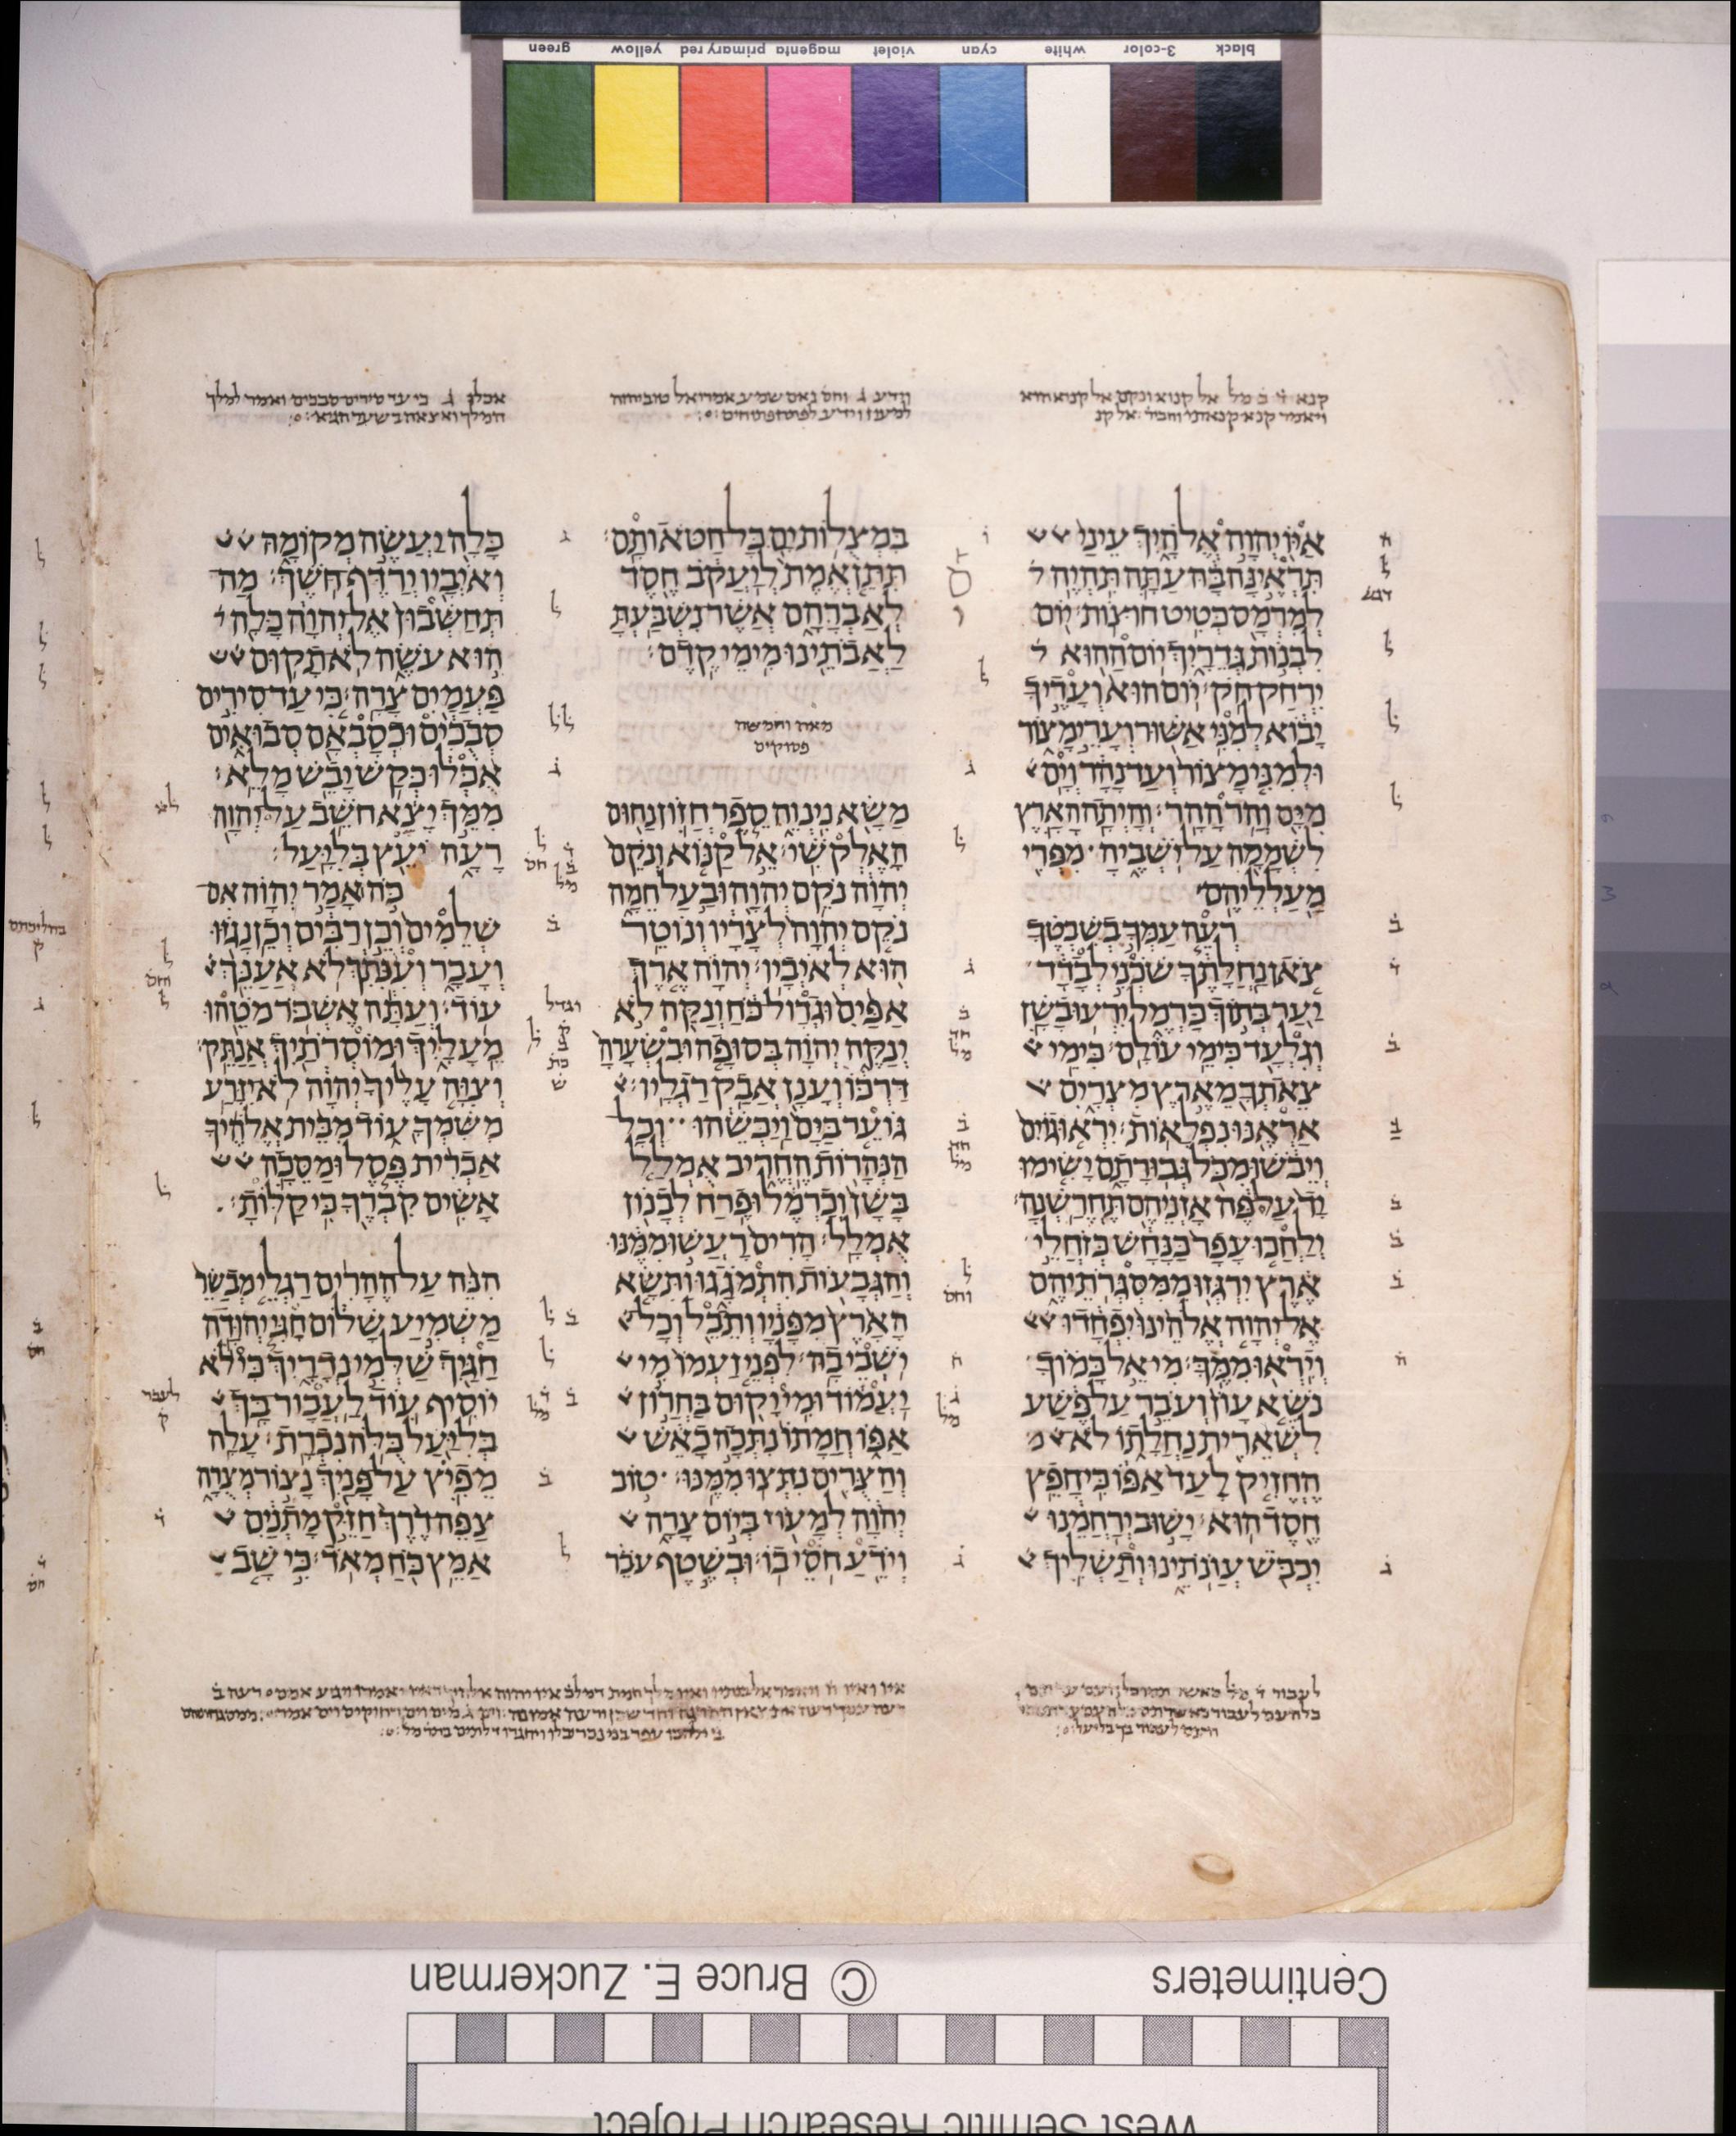 קנא ד ב מל אל קנוא ונקם אל קנוא הוא
ויאמר קנא קנאתי וחבר אל קנ
וידע ג וחס נאם שמיע אמרי אל טוב יהוה
למעוז וידע
אכלו ג כי עד סירים סבכים ואמר למלך
המלך
איו יהוה אלהיך עיני
תראינה בה עתה תהיה ל
למרמס כטיט חוצות יום
לבנות גדריך יום ההוא
ירחק חק יום הוא ועדיך
יבוא למני אשור וערי מצור
ולמני מצור ועד נהר וים
מים והר ההר והיתה הארץ
לשממה על ישביה מפרי
מעלליהם
רעה עמך בשבטך
צאן נחלתך שכני לבדד
יער בתוך כרמל ירעו בשן
וגלעד כימי עולם כימי
צאתך מארץ מצרים
אראנו נפלאות יראו גוים
ויבשו מכל גבורתם ישימו
יד על פה אזניהם תחרשנה
ילחכו עפר כנחש כזחלי
ארץ ירגזו ממסגרתיהם
אל יהוה אלהינו יפחדו
ויראו ממך מי אל כמוך
נשא עון ועבר על פשע
לשארית נחלתו לא
החזיק לעד אפו כי חפץ
חסד הוא ישוב ירחמנו
יכבש עונתינו ותשליך
במצלות ים כל חטאותם
תתן אמת ליעקב חסד
לאברהם אשר נשבעת
לאבתינו מימי קדם
מאה וחמשה
פסוקים
משא נינוה ספר חזון נחום
האלקשי אל קנוא ונקם
יהוה נקם יהוה ובעל חמה
נקם יהוה לצריו ונוטר
הוא לאיביו יהוה ארך
אפים וגדול כח ונקה לא
ינקה יהוה בסופה ובשערה
דרכו וענן אבק רגליו
גוער בים ויבשהו וכל
הנהרות החריב אמלל
בשן וכרמל ופרח לבנון
אמלל הרים רעשו ממנו
והגבעות התמגגו ותשא
הארץ מפניו ותבל וכל
ישבי בה לפני זעמו מי
יעמוד ומי יקום בחרון
אפו חמתו נתכה כאש
והצרים נתצו ממנו טוב
יהוה למעוז ביום צרה
וידע חסי בו ובשטף עבר
כלה יעשה מקומה
ואיביו ירדף חשך מה
תחשבון אל יהוה כלה
הוא עשה לא תקום
פעמים צרה כי עד סירים
סבכים וכסבאם סבואים
אכלו כקש יבש מלא
ממך יצא חשב על יהוה
רעה יעץ בליעל
כה אמר יהוה אם
שלמים וכן רבים וכן נגזו
ועבר וענתך לא אענך
עוד ועתה אשבר מטהו
מעליך ומוסרתיך אנתק
וצוה עליך יהוה לא יזרע
משמך עוד מבית אלהיך
אכרית פסל ומסכה
אשים קברך כי קלות
הנה על ההרים רגלי מבשר
משמיע שלום חגי יהודה
חגיך שלמי נדריך כי לא
יוסיף עוד לעבור בך
בליעל כלה נכרת עלה
מפיץ על פניך נצור מצרה
צפה דרך חזק מתנים
אמץ כח מאד כי שב
green yellow primary red magenta violet cyan white 3-color black
Centimeters
© Bruce E. Zuckerman
West Semitic Research Project